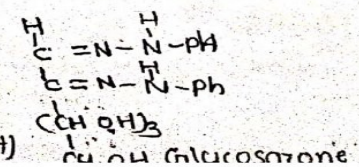 H H
C = N - N - pH
H
C = N - N - Ph
(CH OH)3
7) CH OH Glucosazone